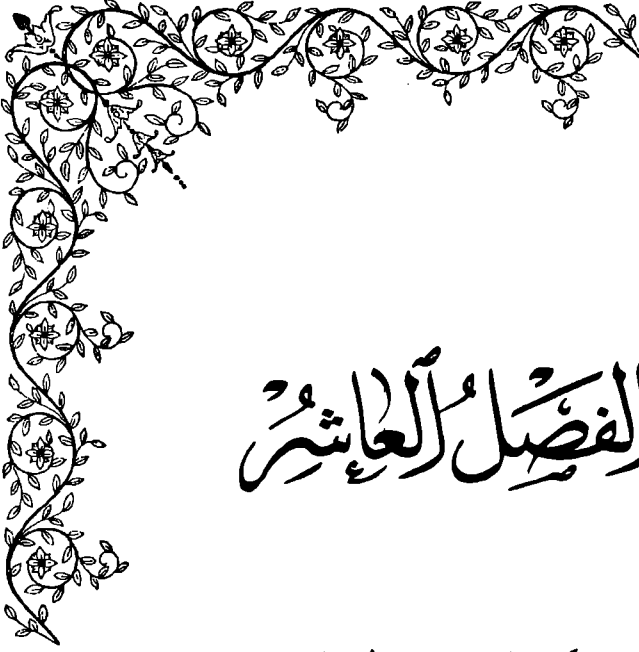 الفَصْلُ ٱلْعَاشِرُ